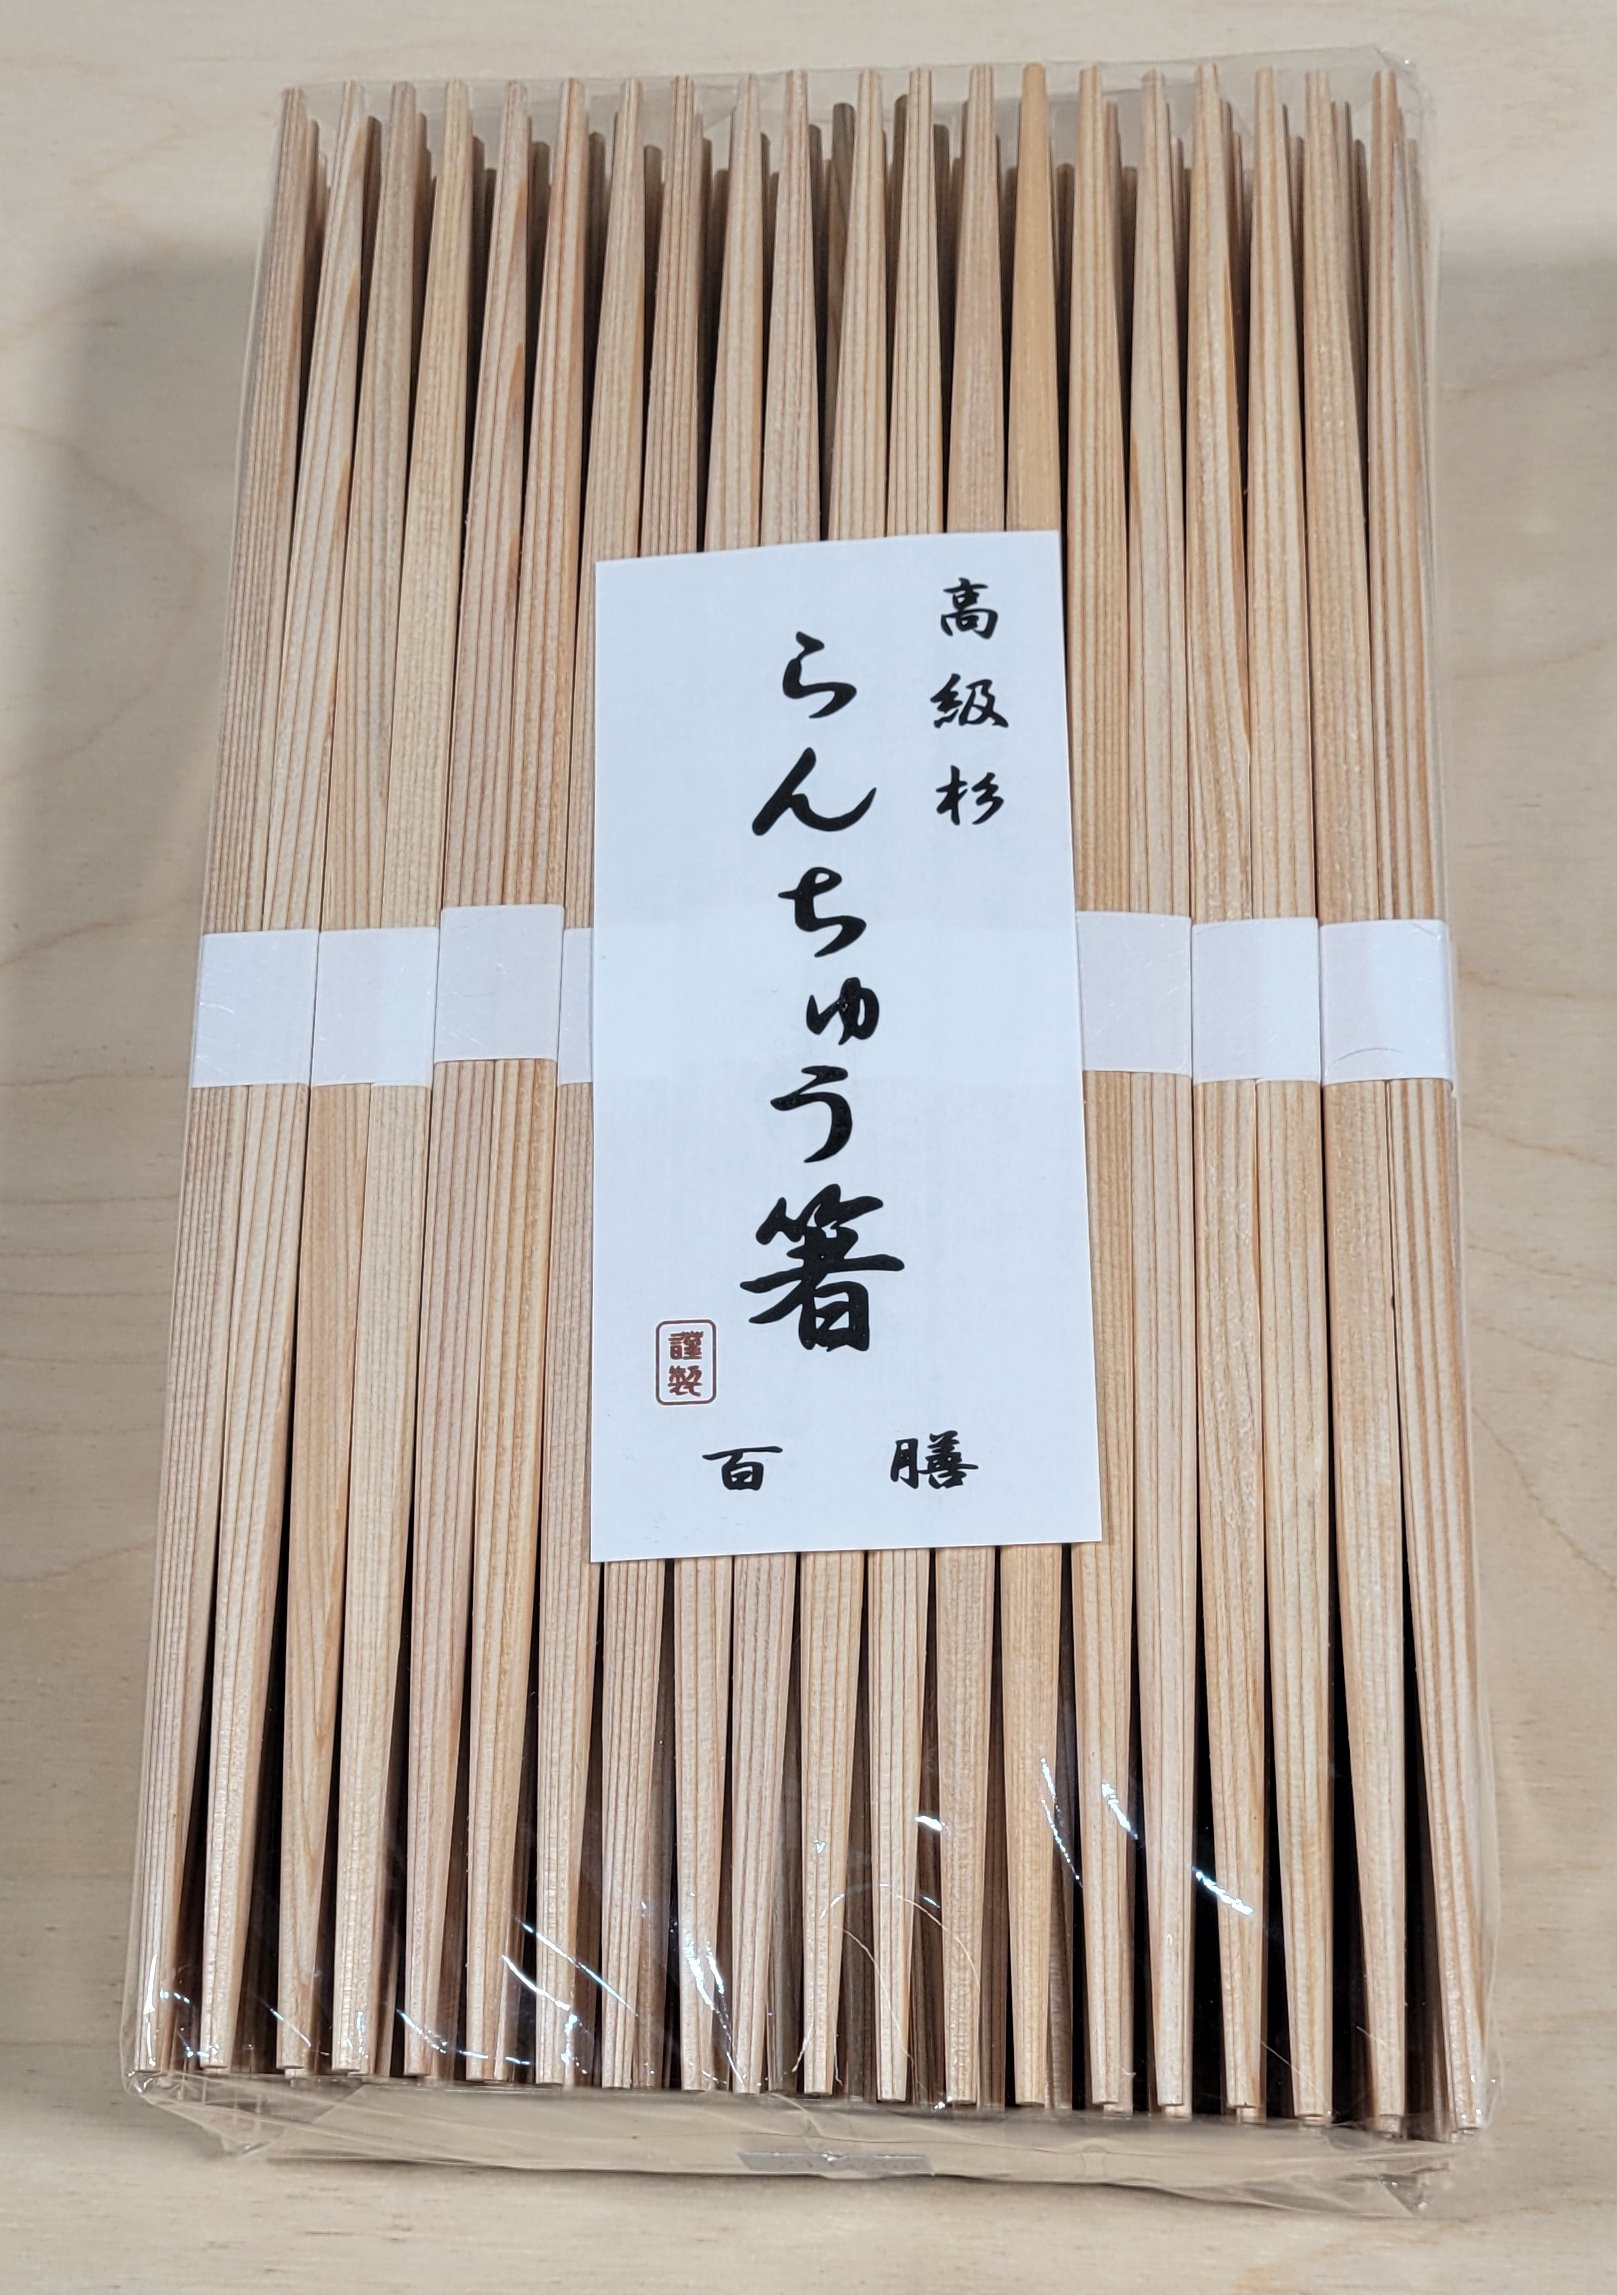 高級杉
らんちゅう箸
謹製
百膳